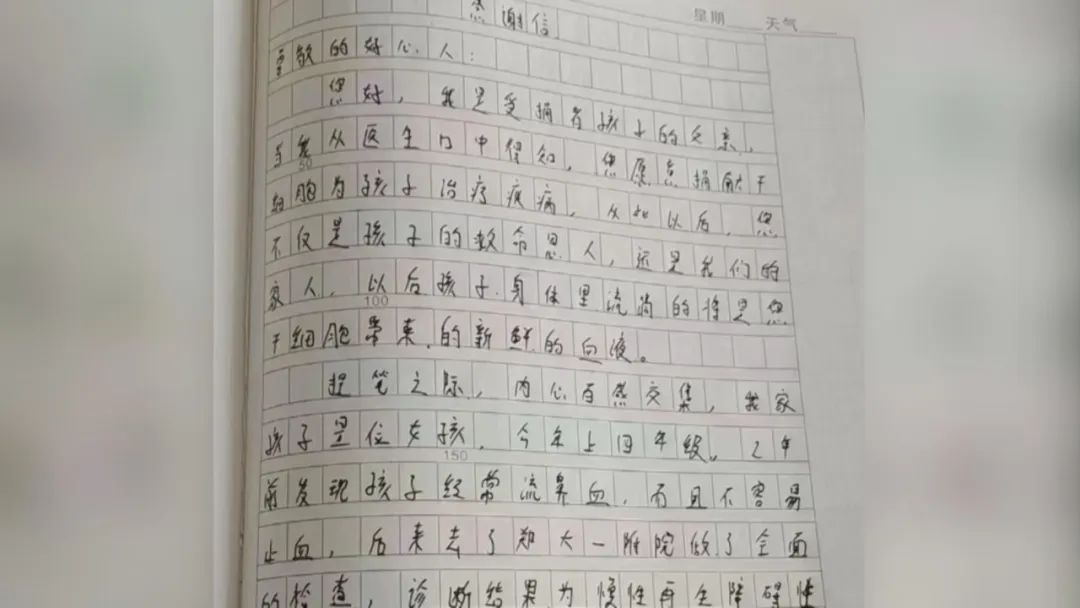 星期 天气
感谢信
尊敬的好心人：
您好，我是受捐者孩子的父亲，
当我从医生口中得知，您愿意捐献干
50
细胞为孩子治疗疾病，从此以后，您
不仅是孩子的救命恩人，还是我们的
家人，以后孩子身体里流淌的将是您
100
干细胞带来的新鲜的血液。
提笔之际，内心百感交集，我家
孩子是位女孩，今年上四年级。2年
150
前发现孩子经常流鼻血，而且不容易
止血，后来去了郑大一附院做了全面
的检查，诊断结果为慢性再生障碍性